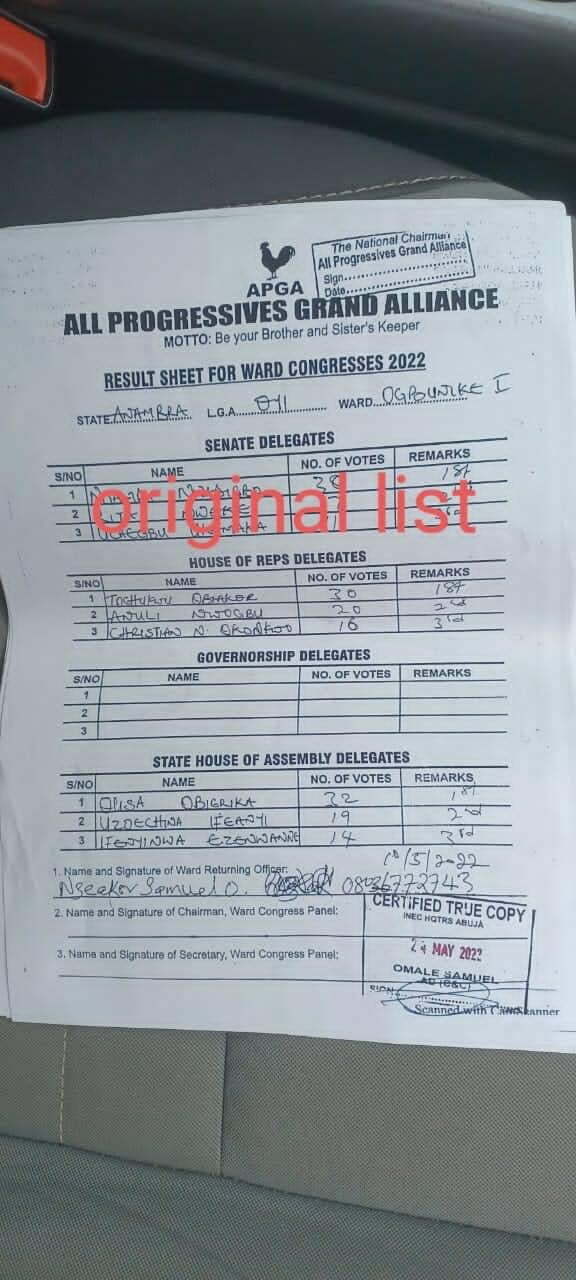 The National Chairman
All Progressives Grand Alliance
Sign
Date
APGA
ALL PROGRESSIVES GRAND ALLIANCE
MOTTO: Be your Brother and Sister's Keeper
RESULT SHEET FOR WARD CONGRESSES 2022
STATE ANAMBRA L.G.A OYI WARD OGBUNIKE I
SENATE DELEGATES
S/NO NAME NO. OF VOTES REMARKS
1 1st
2
3
original list
HOUSE OF REPS DELEGATES
S/NO NAME NO. OF VOTES REMARKS
1 TOCHUKWU 30 1st
2 ANULI NWOGBU 20 2nd
3 CHRISTIAN N. OKONKWO 16 3rd
GOVERNORSHIP DELEGATES
S/NO NAME NO. OF VOTES REMARKS
1
2
3
STATE HOUSE OF ASSEMBLY DELEGATES
S/NO NAME NO. OF VOTES REMARKS
1 OLISA OBIGRIKA 32 1st
2 UZOECHINA IFEANYI 19 2nd
3 IFEYINWA EZENWANNE 14 3rd
10/5/2022
1. Name and Signature of Ward Returning Officer:
Samuel O.
2. Name and Signature of Chairman, Ward Congress Panel:
CERTIFIED TRUE COPY
INEC HQTRS ABUJA
MAY 2022
3. Name and Signature of Secretary, Ward Congress Panel:
OMALE SAMUEL
AD (C&C)
SIGN
Scanned with CamScanner